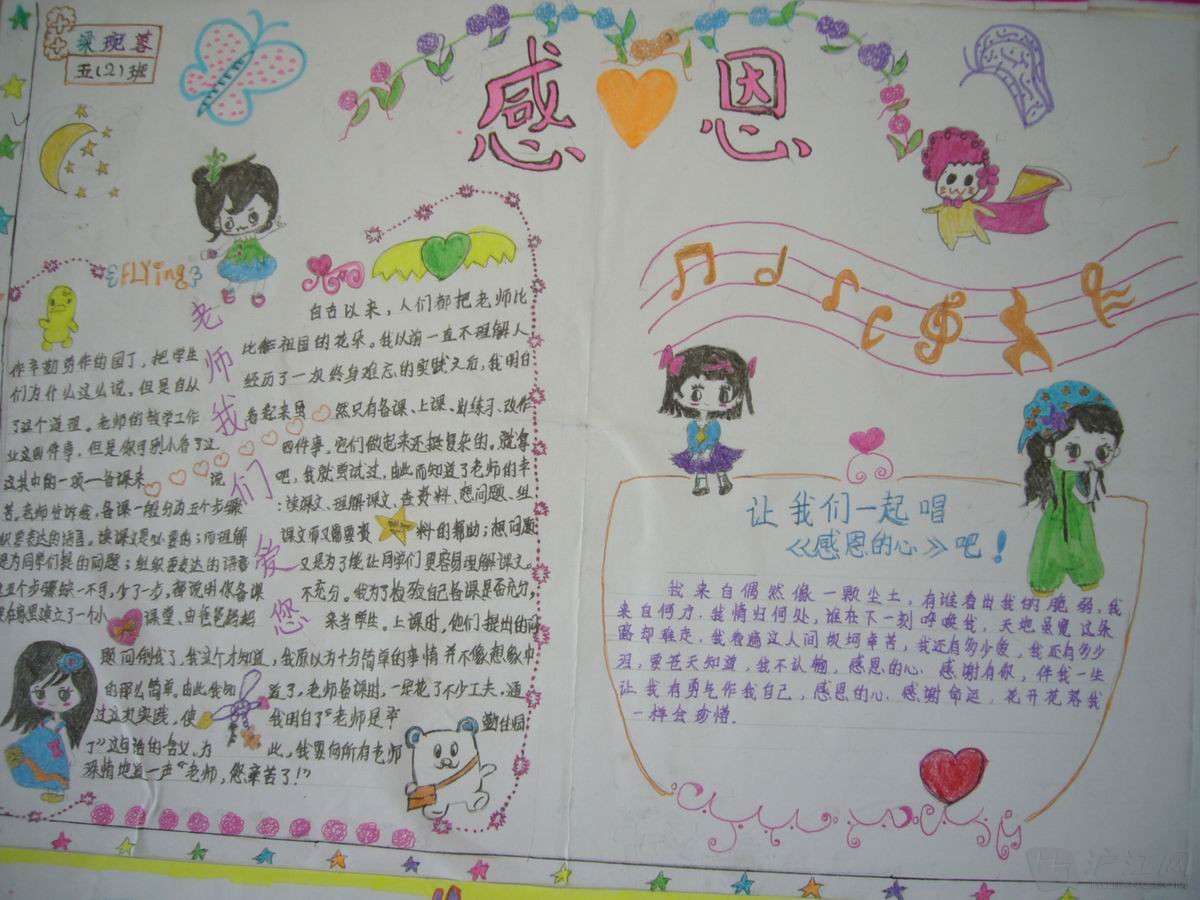 梁琬蓉
五(2)班
感恩
FLYing
老师我们爱您
自古以来，人们都把老师比
作辛勤劳作的园丁，把学生比作祖国的花朵。我以前一直不理解人
们为什么这么说，但是自从经历了一次终身难忘的实践之后，我明白
了这个道理。老师的教学工作看起来虽然只有备课、上课、出练习、改作
业这四件事，但是你可别小看了这四件事，它们做起来还挺复杂的。就拿
这其中的一项——备课来说吧，我就尝试过，由此而知道了老师的辛
苦。老师告诉我，备课一般分为五个步骤：读课文、理解课文、查资料、想问题、组
织要表达的语言。读课文是必要的；而理解课文而又需要资料的帮助；想问题
是为同学们提的问题；组织要表达的语言又是为了能让同学们更容易理解课文。
五个步骤缺一不可，少了一步，都说明你备课不充分。我为了检验自己备课是否充分，
在家里建立了一个小课堂，由爸爸妈妈来当学生。上课时，他们提出的问
题问倒我了，我这个才知道，我原以为十分简单的事情并不像想象中
的那么简单。由此我知道了，老师备课时，一定花了不少工夫，通
过这次实践，使我明白了“老师是辛勤的园
丁”这句话的含义，为此，我要向所有老师
深情地道一声“老师，您辛苦了！”
让我们一起唱
《感恩的心》吧！
我来自偶然像一颗尘土，有谁看出我的脆弱，我
来自何方，我情归何处，谁在下一刻呼唤我，天地虽宽这条
路却难走，我看遍这人间坎坷辛苦，我还有多少爱，我还有多少
泪，要苍天知道，我不认输，感恩的心.感谢有你，伴我一生
让我有勇气作我自己，感恩的心.感谢命运，花开花落我
一样会珍惜.
沪江网